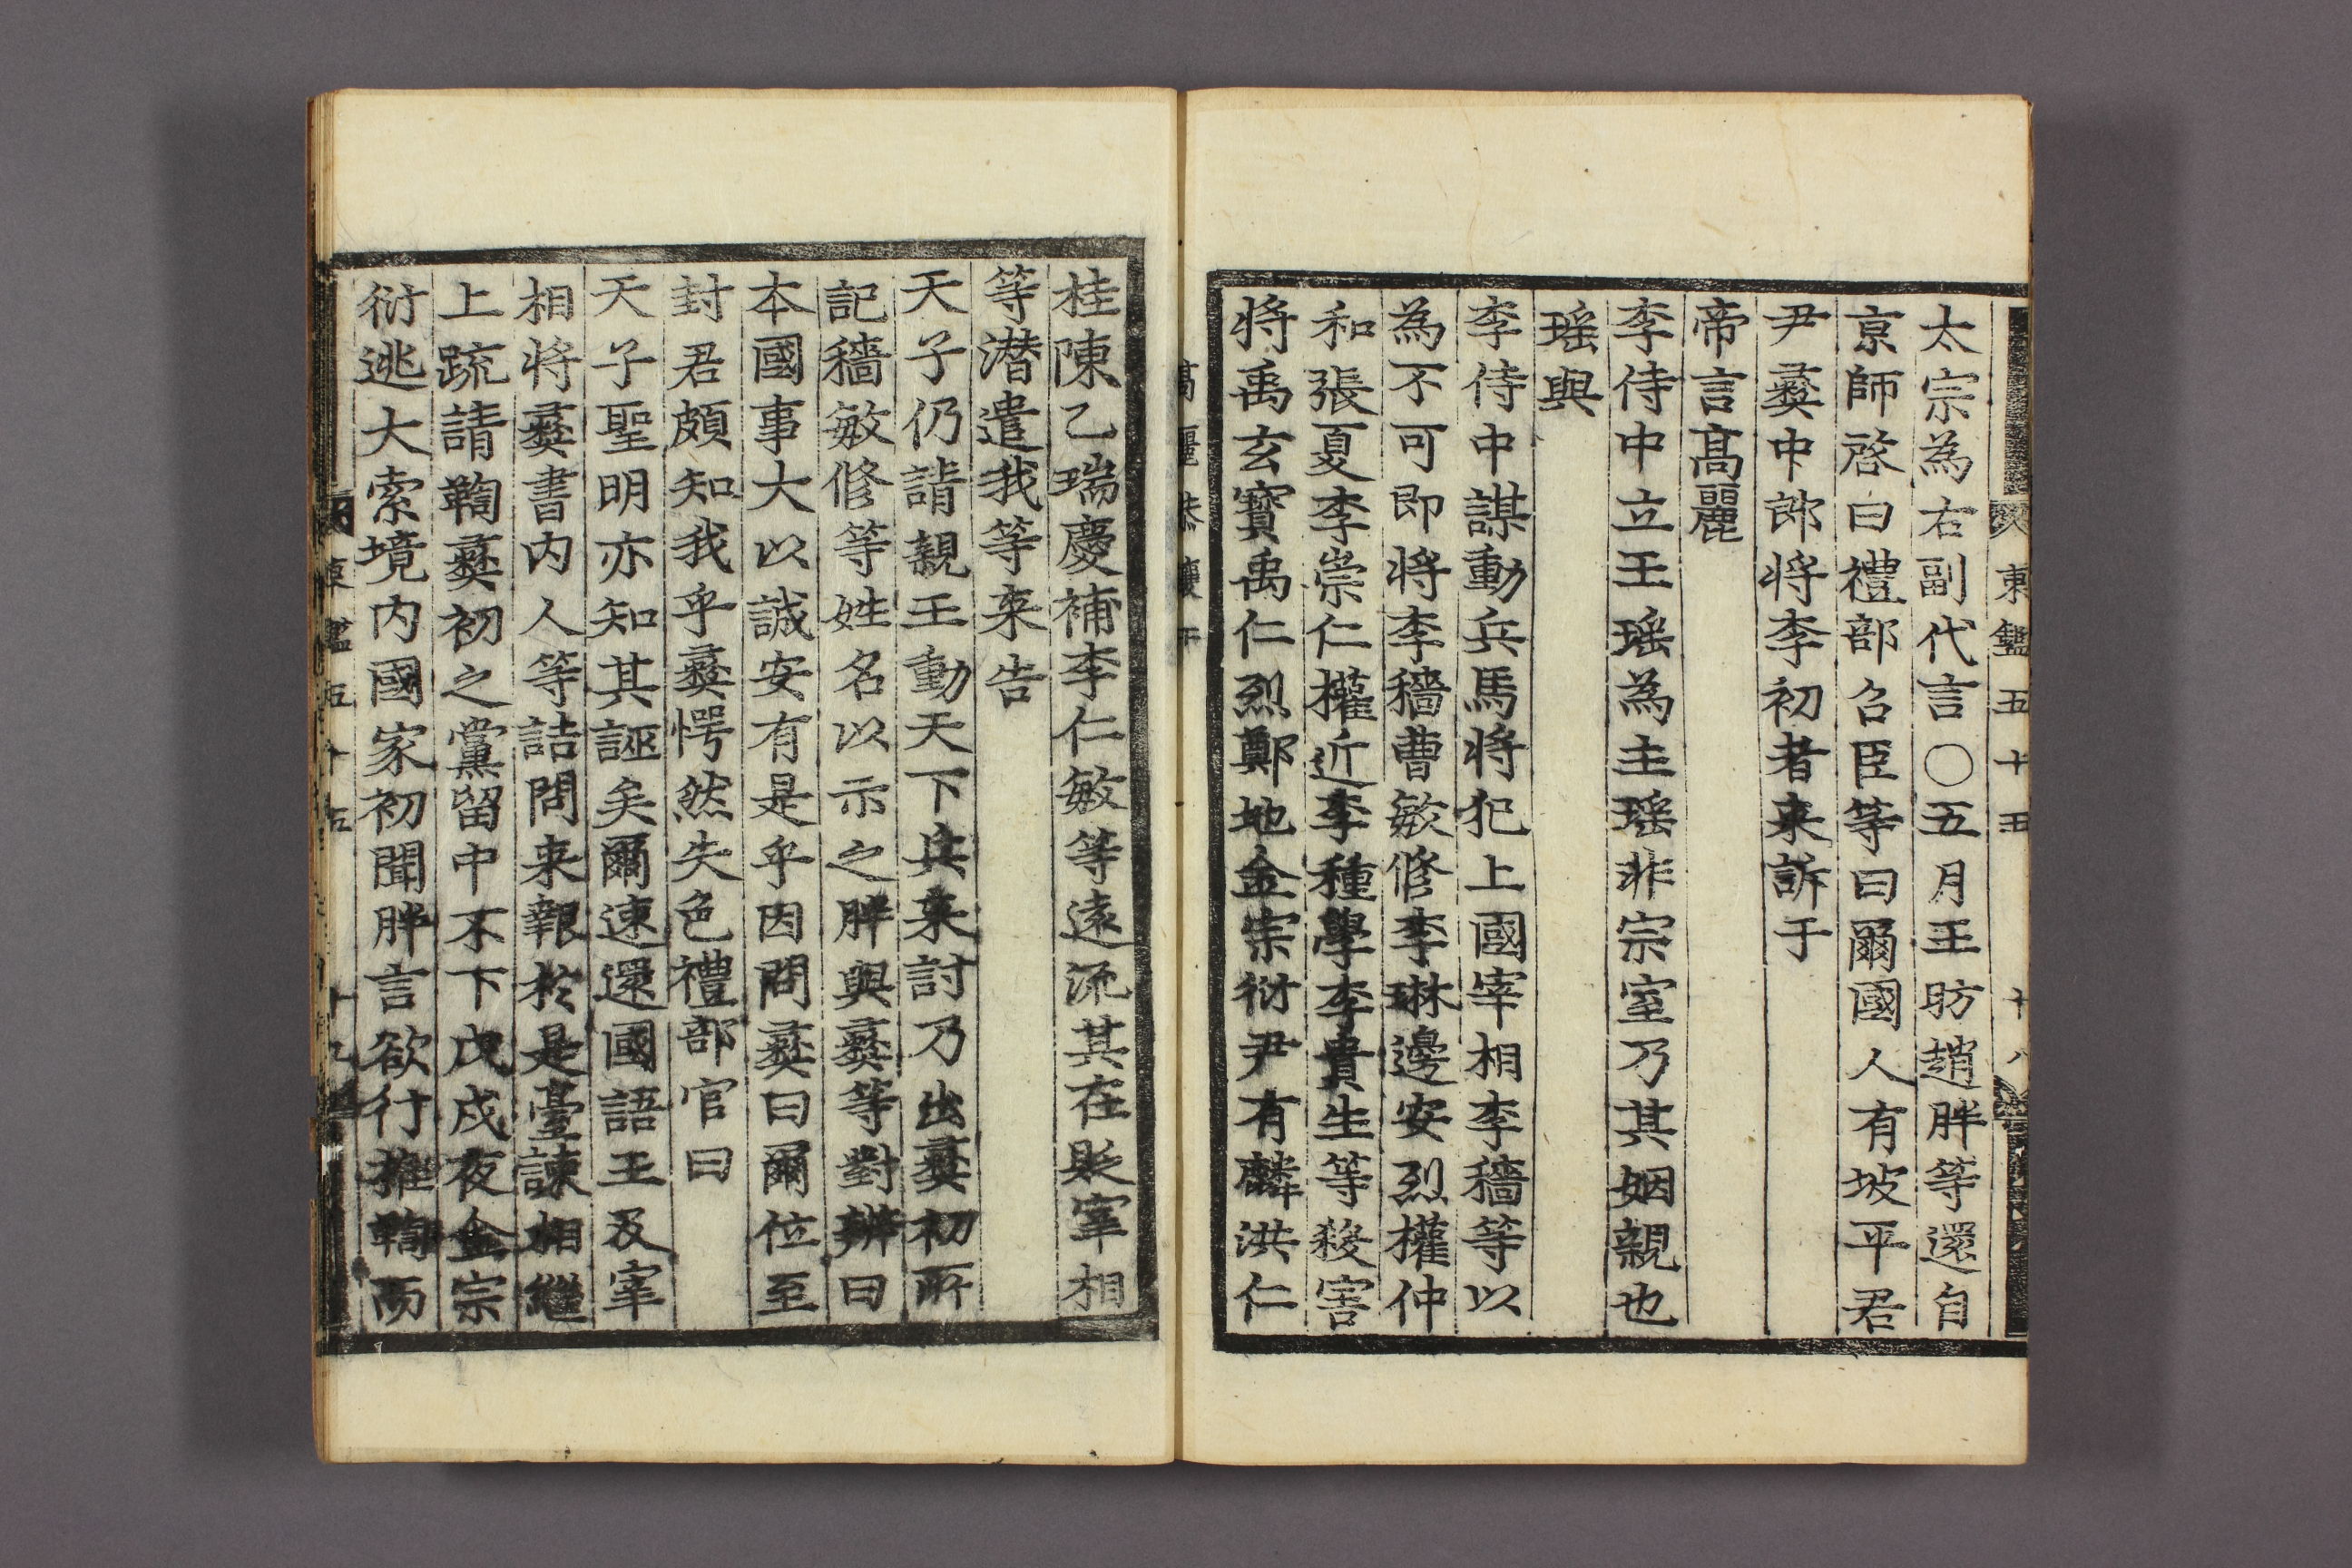 東鑑五十五 十八
太宗為右副代言○五月王昉趙胖等還自
京師啓曰禮部召臣等曰爾國人有坡平君
尹彝中郎將李初者来訴于
帝言高麗
李侍中立王瑶為主瑶非宗室乃其姻親也
瑶與
李侍中謀動兵馬將犯上國宰相李穡等以
為不可即將李穡曹敏修李琳邊安烈權仲
和張夏李崇仁權近李種學李貴生等殺害
將禹玄寳禹仁烈鄭地金宗衍尹有麟洪仁
桂陳乙瑞慶補李仁敏等遠流其在貶宰相
等潜遣我等来告
天子仍請親王動天下兵来討乃出彝初所
記穡敏修等姓名以示之胖與彝等對辨曰
本國事大以誠安有是乎因問彝曰爾位至
封君頗知我乎彝愕然失色禮部官曰
天子聖明亦知其誣矣爾速還國語王及宰
相將彝書内人等詰問来報於是臺諫相繼
上疏請鞫彝初之黨留中不下戊戌夜金宗
衍逃大索境内國家初聞胖言欲行推鞫而